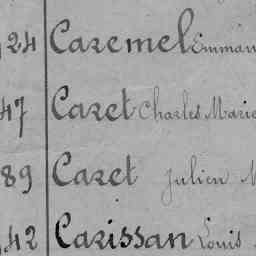 24 Caremel Emman
47 Caret Charles Marie
89 Caret Julien M
42 Carissan Louis